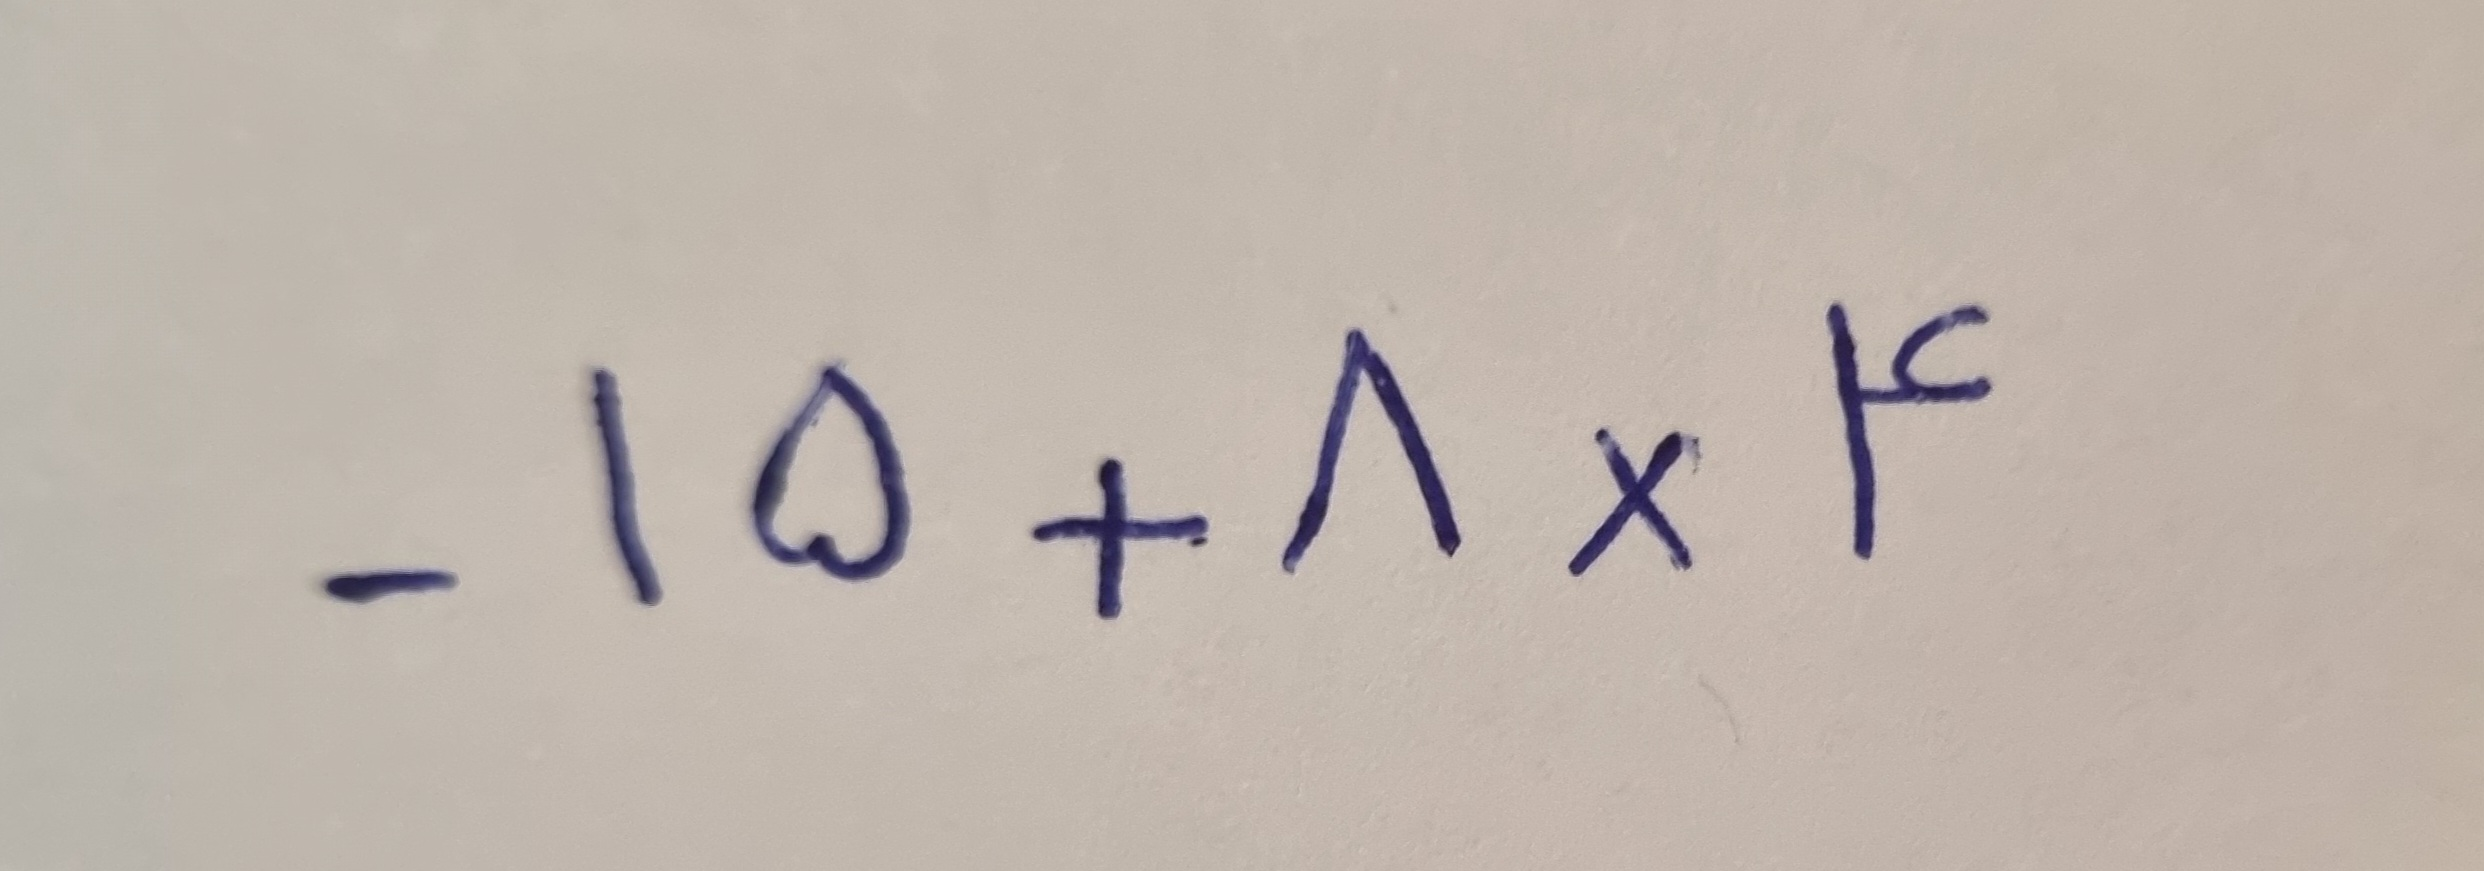 -۱۵+۸×۴